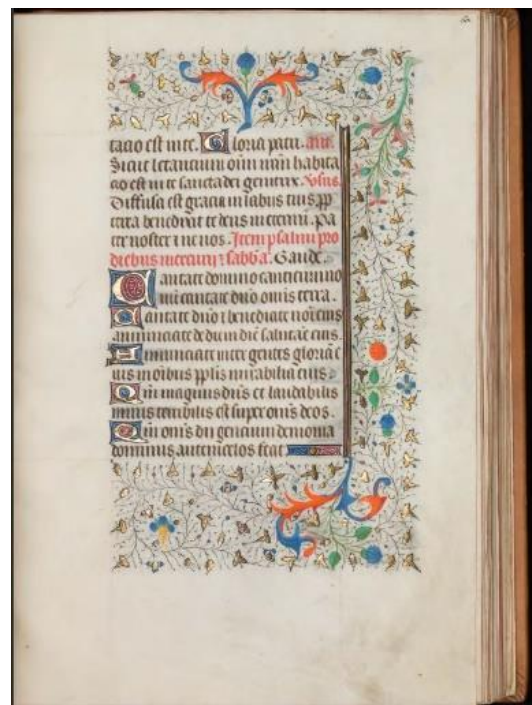 tacio est in te. Gloria patri. An.
Sicut letancium oim nrm habita
cio est in te sancta dei genitrix. Vsus.
Diffusa est gracia in labiis tuis. pp
terea benedixit te deus in eternu. Pa
ter noster et ne nos. Item psalmi pro
diebus mercurij et sabba. Gaude.
Cantate domino canticum no
uum cantate dno omnis terra.
Cantate dno et benedicite nomi eius
annunciate de die in die salutare eius.
Annunciate inter gentes gloria e
ius in oibus pplis mirabilia eius.
Qm magnus dns et laudabilis
nimis terribilis est super omnes deos.
Qm omnes dii gencium demonia
dominus autem celos fecit